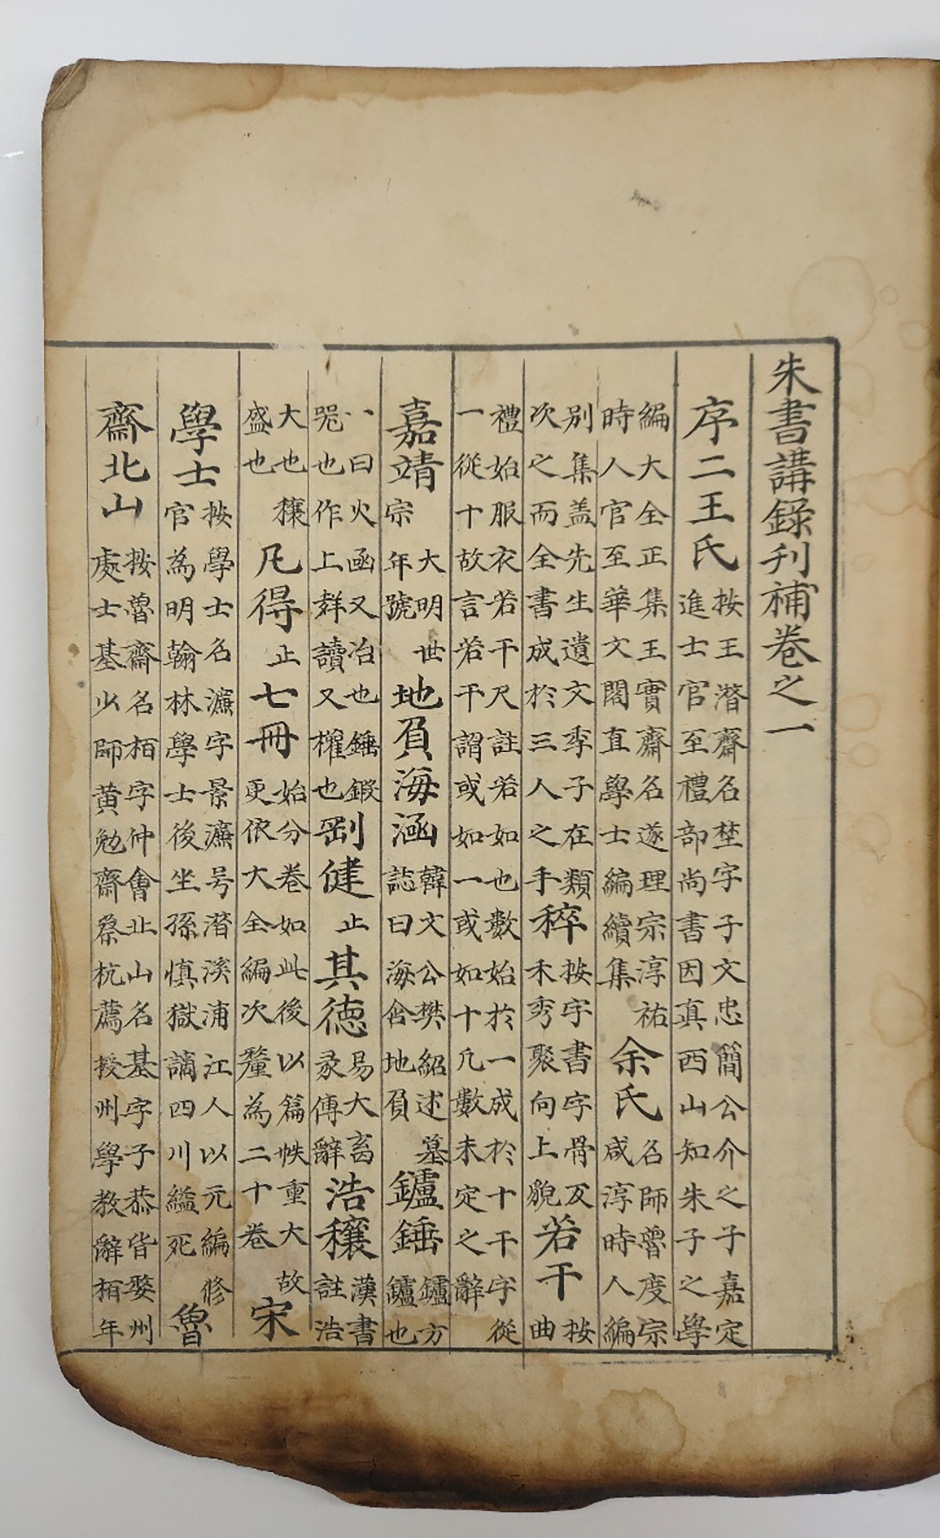 朱書講錄刊補卷之一
序二王氏按王潛齋名埜字子文忠簡公介之子嘉定進士官至禮部尚書因真西山知朱子之學
編大全正集王實齋名遂理宗淳祐時人官至華文閣直學士編續集余氏名師魯度宗咸淳時人編
別集盖先生遺文季子在類次之而全書成於三人之手稡按字書字骨及禾秀聚向上貌若干按曲
禮始服衣若干尺註若如也數始於一成於十干字從一從十故言若干謂或如一或如十凡數未定之辭
嘉靖大明世宗年號地負海涵韓文公樊紹述墓誌曰海含地負鑪錘鑪方鑪也
、曰火函又冶也錘鍛器也作上群讀又權也剛健止其德易大畜彖傳辭浩穰漢書註浩
大也穰盛也凡得止七冊始分卷如此後以篇帙重大故更依大全編次釐為二十卷宋
學士按學士名濂字景濂号潛溪浦江人以元編修官為明翰林學士後坐孫慎獄謫四川縊死魯
齋北山按魯齋名栢字仲會北山名基字子恭皆婺州處士基少師黃勉齋蔡杭薦授州學教辭栢年